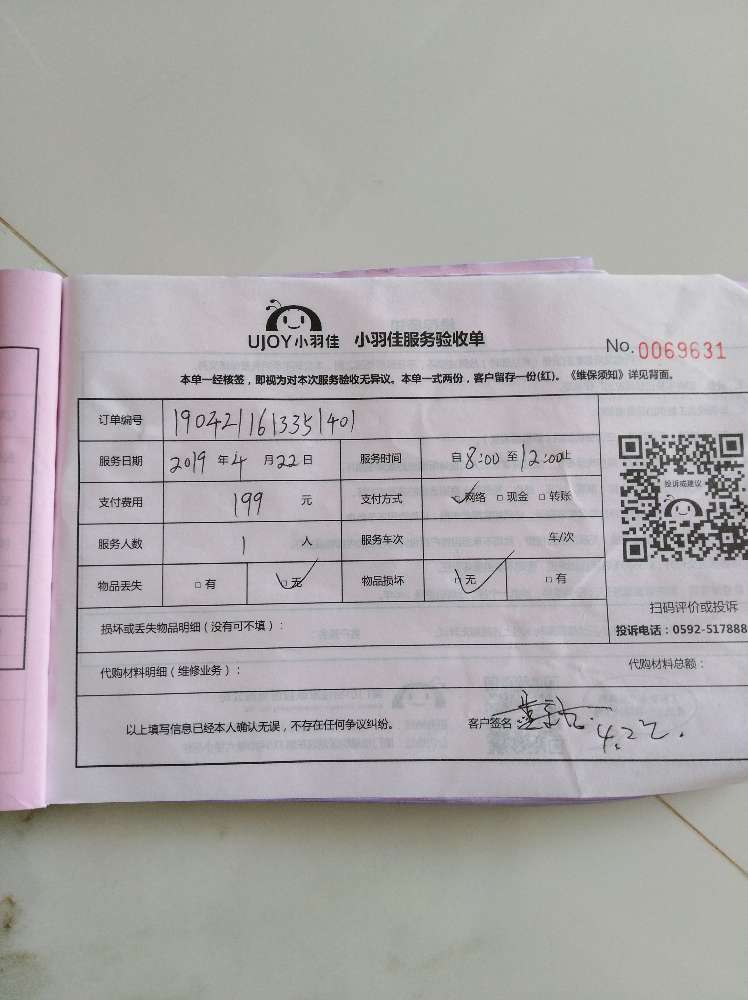 UJOY小羽佳 小羽佳服务验收单 No.0069631
本单一经核签，即视为对本次服务验收无异议。本单一式两份，客户留存一份(红)。《维保须知》详见背面。
订单编号 1904211613351401
服务日期 2019 年 4 月 22 日 服务时间 自 8:00 至 12:00 止
支付费用 199 元 支付方式 ☑网络 □现金 □转账
服务人数 1 人 服务车次 车/次
物品丢失 □有 ☑无 物品损坏 ☑无 □有
投诉或建议
扫码评价或投诉
投诉电话：0592-517888
损坏或丢失物品明细（没有可不填）：
代购材料明细（维修业务）： 代购材料总额：
以上填写信息已经本人确认无误，不存在任何争议纠纷。 客户签名： 4.22.